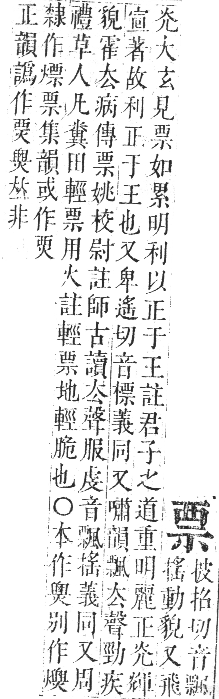 票
彼招切音飄
搖動貌又飛
灮太玄見票如累明利以正于王註君子之道重明麗正灮輝
宣著故利正于王也又卑遙切音標義同又嘯韻飄厺聲勁疾
貌霍厺病傳票姚校尉註師古讀厺聲服虔音飄搖義同又周
禮草人凡糞田輕票用火註輕票地輕脆也〇本作㷠別作熛
隸作熛票集韻或作
正韻譌作𠀤非